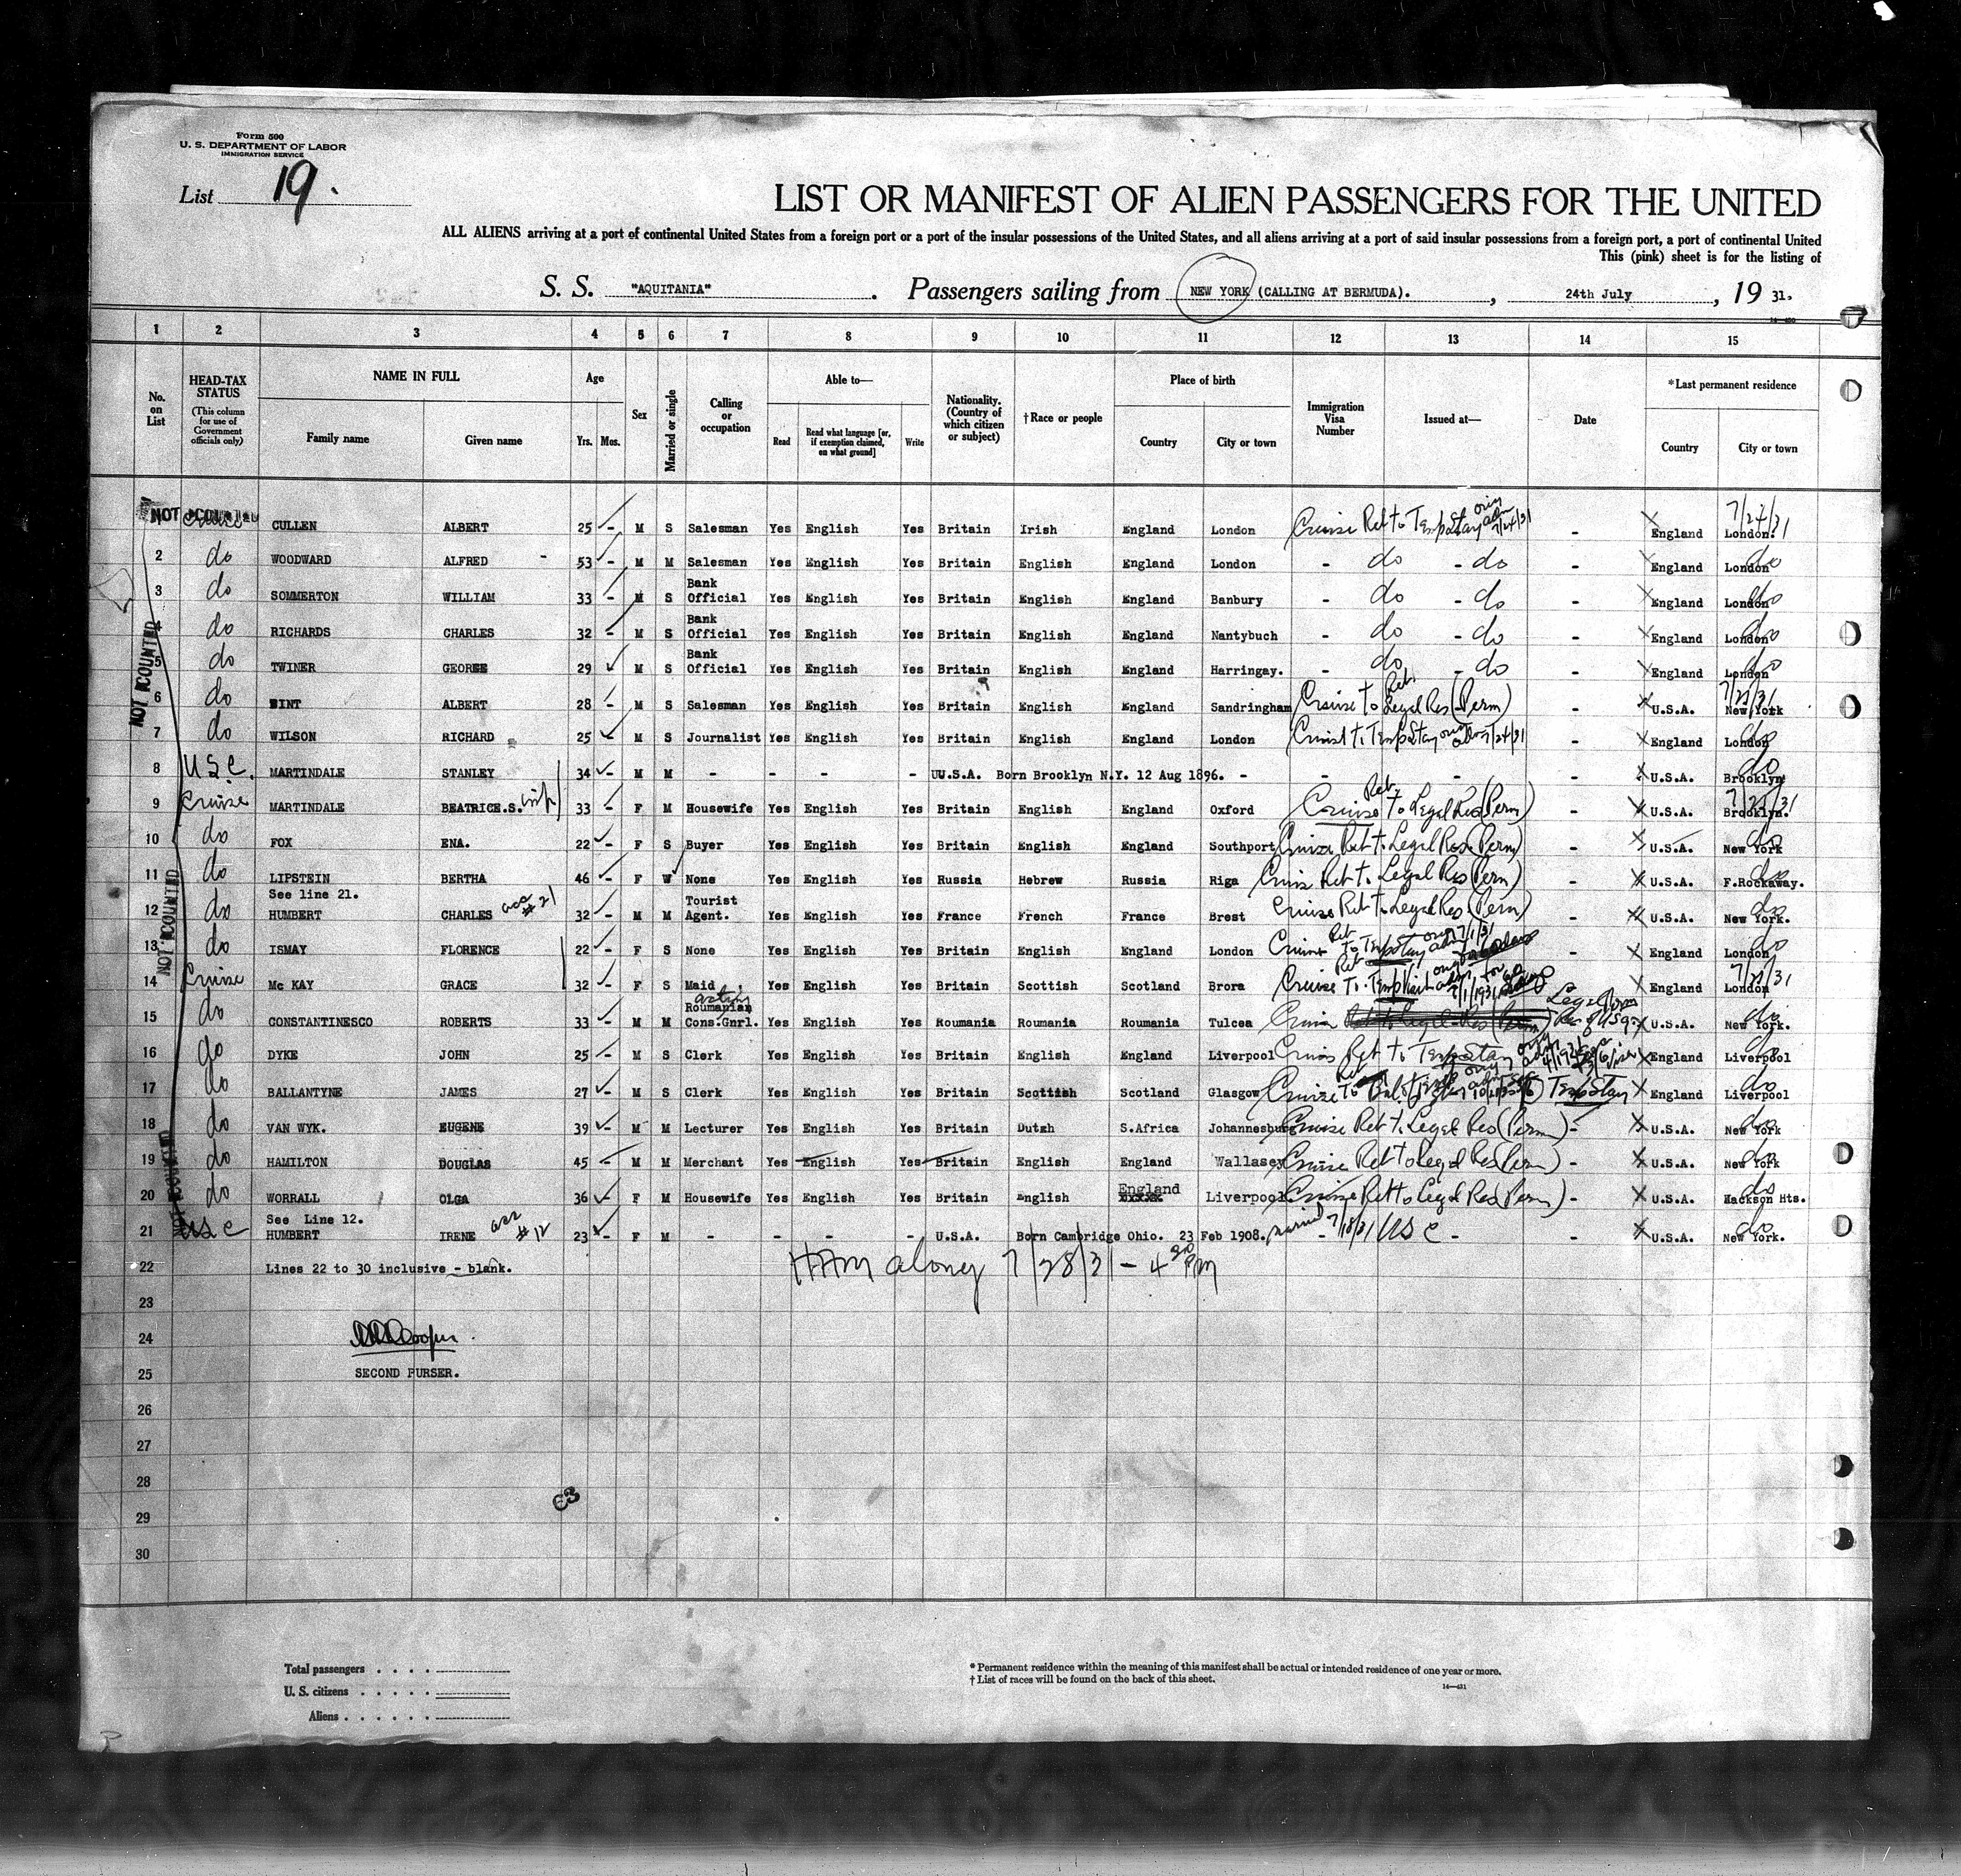 Form 500
U. S. DEPARTMENT OF LABOR
IMMIGRATION SERVICE
List 19.
LIST OR MANIFEST OF ALIEN PASSENGERS FOR THE UNITED
ALL ALIENS arriving at a port of continental United States from a foreign port or a port of the insular possessions of the United States, and all aliens arriving at a port of said insular possessions from a foreign port, a port of continental United
This (pink) sheet is for the listing of
S. S. "AQUITANIA". Passengers sailing from NEW YORK (CALLING AT BERMUDA)., 24th July, 19 31.
1 2 3 4 5 6 7 8 9 10 11 12 13 14 15
No. on List
HEAD-TAX STATUS (This column for use of Government officials only)
NAME IN FULL Family name Given name
Age Yrs. Mos.
Sex
Married or single
Calling or occupation
Able to— Read Read what language [or, if exemption claimed, on what ground] Write
Nationality. (Country of which citizen or subject)
†Race or people
Place of birth Country City or town
Immigration Visa Number
Issued at—
Date
*Last permanent residence Country City or town
NOT COUNTED Cruise CULLEN ALBERT 25 - M S Salesman Yes English Yes Britain Irish England London Cruise Ret to Temp Stay orig adm 7/24/31 - England London. 7/24/31
2 do WOODWARD ALFRED - 53 - M M Salesman Yes English Yes Britain English England London - do - do - England London do
3 do SOMMERTON WILLIAM 33 - M S Bank Official Yes English Yes Britain English England Banbury - do - do - England London do
4 do RICHARDS CHARLES 32 - M S Bank Official Yes English Yes Britain English England Nantybuch - do - do - England London do
5 do TWINER GEORGE 29 M S Bank Official Yes English Yes Britain English England Harringay. - do - do - England London do
6 do INT ALBERT 28 - M S Salesman Yes English Yes Britain English England Sandringham Cruise Ret to Legal Res (Perm) - U.S.A. New York
7 do WILSON RICHARD 25 M S Journalist Yes English Yes Britain English England London Cruise to Temp Stay orig adm 7/24/31 - England London do
8 U.S.C. MARTINDALE STANLEY 34 - M M - - - - UU.S.A. Born Brooklyn N.Y. 12 Aug 1896. - - - - U.S.A. Brooklyn do
9 Cruise MARTINDALE BEATRICE.S. 33 - F M Housewife Yes English Yes Britain English England Oxford Cruise Ret to Legal Res (Perm) - U.S.A. Brooklyn.
10 do FOX ENA. 22 - F S Buyer Yes English Yes Britain English England Southport Cruise Ret to Legal Res (Perm) - U.S.A. New York do
11 do LIPSTEIN BERTHA 46 - F W None Yes English Yes Russia Hebrew Russia Riga Cruise Ret to Legal Res (Perm) - U.S.A. F.Rockaway. do
See line 21.
12 do HUMBERT CHARLES acc #21 32 - M M Tourist Agent. Yes English Yes France French France Brest Cruise Ret to Legal Res (Perm) - U.S.A. New York. do
13 do ISMAY FLORENCE 22 - F S None Yes English Yes Britain English England London Cruise Ret to Temp Stay orig adm 7/1/31 - England London do
14 Cruise Mc KAY GRACE 32 - F S Maid Yes English Yes Britain Scottish Scotland Brora Cruise Ret to Temp Visit orig adm 7/1/1931 England London
15 do CONSTANTINESCO ROBERTS 33 - M M acting Roumanian Cons.Gnrl. Yes English Yes Roumania Roumania Roumania Tulcea Cruise Ret to Legal Res (Perm) U.S.A. New York. do
16 do DYKE JOHN 25 - M S Clerk Yes English Yes Britain English England Liverpool Cruise Ret to Temp Stay orig adm England Liverpool do
17 do BALLANTYNE JAMES 27 - M S Clerk Yes English Yes Britain Scottish Scotland Glasgow Cruise Ret to Temp Stay England Liverpool do
18 do VAN WYK. EUGENE 39 - M M Lecturer Yes English Yes Britain Dutch S.Africa Johannesburg Cruise Ret to Legal Res (Perm) - U.S.A. New York do
19 do HAMILTON DOUGLAS 45 - M M Merchant Yes English Yes Britain English England Wallasey Cruise Ret to Legal Res (Perm) - U.S.A. New York do
20 do WORRALL OLGA 36 - F M Housewife Yes English Yes Britain English England Liverpool Cruise Ret to Legal Res (Perm) - U.S.A. Hackson Hts. do
See Line 12.
21 USC HUMBERT IRENE acc #12 23 - F M - - - - U.S.A. Born Cambridge Ohio. 23 Feb 1908. married 7/18/31 USC - - U.S.A. New York. do
22 Lines 22 to 30 inclusive - blank. along 7/28/31 - 4 PM
23
24 Cooper
25 SECOND PURSER.
26
27
28
29
30
NOT COUNTED
NOT COUNTED
NOT COUNTED
Total passengers . . . .
U. S. citizens . . . . .
Aliens . . . . . .
* Permanent residence within the meaning of this manifest shall be actual or intended residence of one year or more.
† List of races will be found on the back of this sheet.
14—431